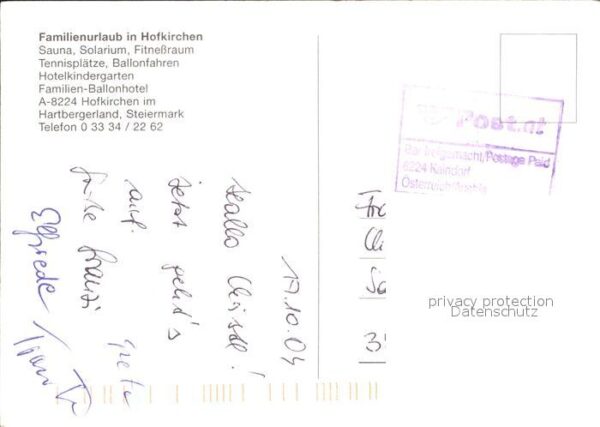 Familienurlaub in Hofkirchen
Sauna, Solarium, Fitneßraum
Tennisplätze, Ballonfahren
Hotelkindergarten
Familien-Ballonhotel
A-8224 Hofkirchen im
Hartbergerland, Steiermark
Telefon 0 33 34 / 22 62
Post.at
Bar freigemacht/Postage Paid
8224 Kaindorf
Österreich/Austria
17.10.04
Hallo Christl!
Jetzt geht's
auf.
Grüße Franzi
Elfriede
Greti
privacy protection
Datenschutz